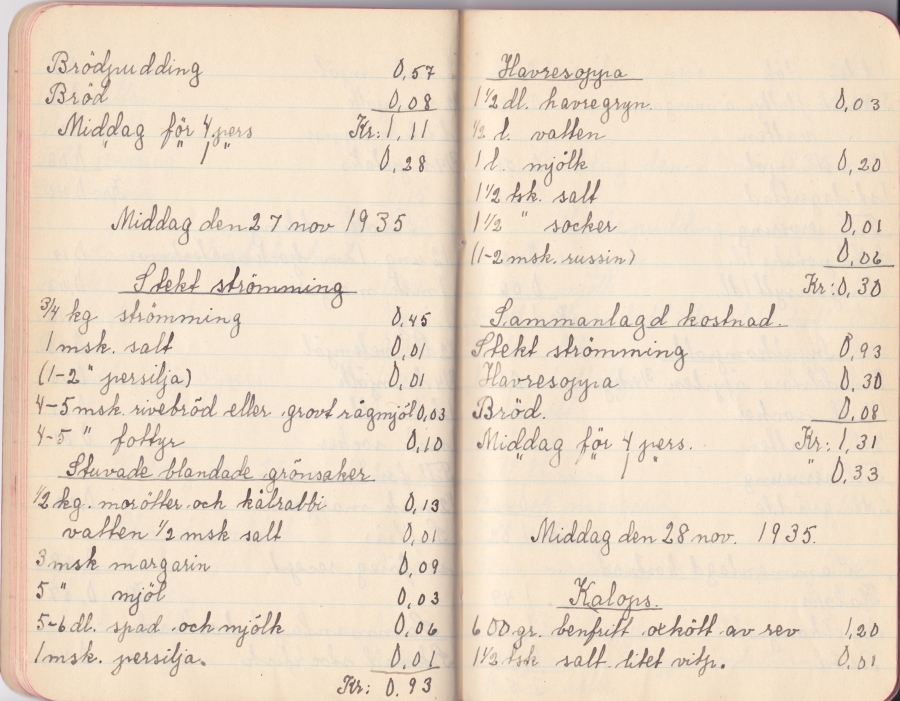 Brödpudding 0,57
Bröd 0,08
Middag för 4 pers Kr: 1,11
" " 1 " 0,28
Middag den 27 nov 1935
Stekt strömming
3/4 kg. strömming 0,45
1 msk. salt 0,01
(1-2 " persilja) 0,01
4-5 msk. rivebröd eller grovt rågmjöl 0,03
4-5 " fottyr 0,10
Stuvade blandade grönsaker
1/2 kg. morötter och kålrabbi 0,13
vatten 1/2 msk salt 0,01
3 msk margarin 0,09
5 " mjöl 0,03
5-6 dl. spad och mjölk 0,06
1 msk. persilja. 0,01
Kr: 0.93
Havresoppa
1 1/2 dl. havregryn. 0,03
1/2 l. vatten
1 l. mjölk 0,20
1 1/2 tsk. salt
1 1/2 " socker 0,01
(1-2 msk. russin) 0,06
Kr: 0,30
Sammanlagd kostnad.
Stekt strömming 0,93
Havresoppa 0,30
Bröd. 0,08
Middag för 4 pers. Kr: 1,31
" " 1 " " 0,33
Middag den 28 nov. 1935.
Kalops.
600 gr. benfritt oxkött av rev 1,20
1 1/2 tsk salt litet vitp. 0,01